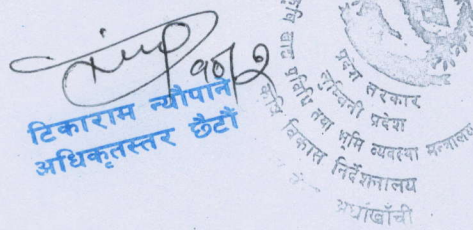 १०/२
टिकाराम न्यौपाने
अधिकृतस्तर छैटौं
प्रदेश सरकार
लुम्बिनी प्रदेश
तथा भूमि व्यवस्था मन्त्रालय
कृषि विकास निर्देशनालय
अर्घाखाँची